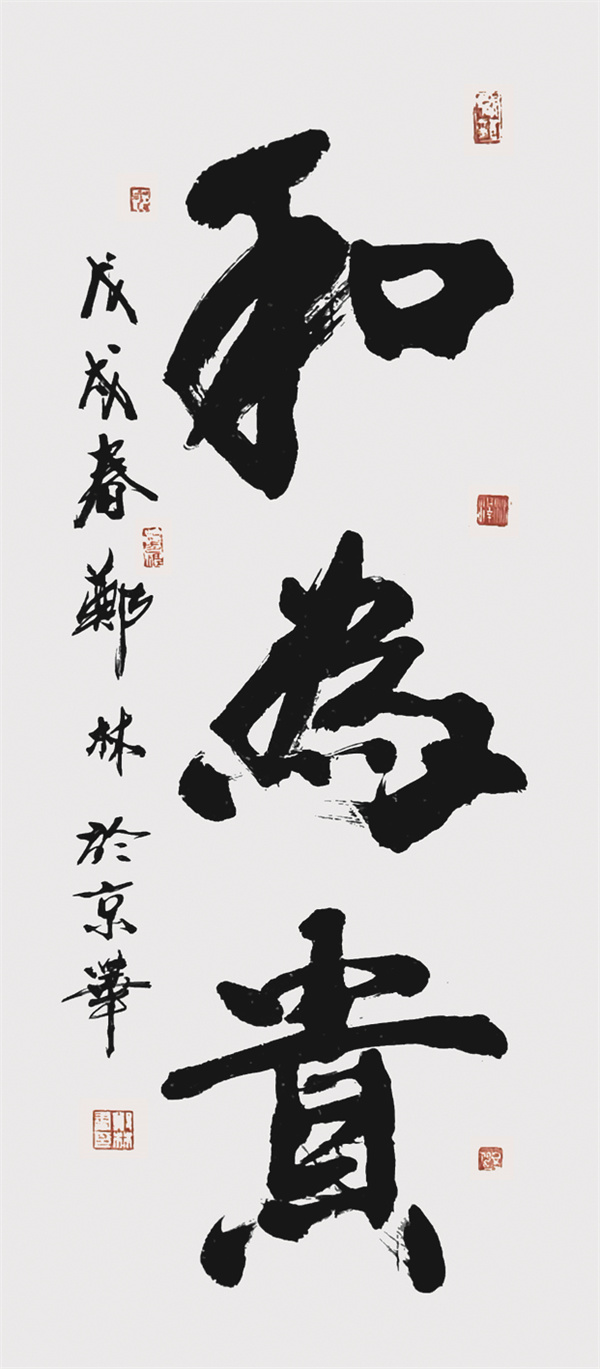 和為貴
戊戌春鄭林於京華